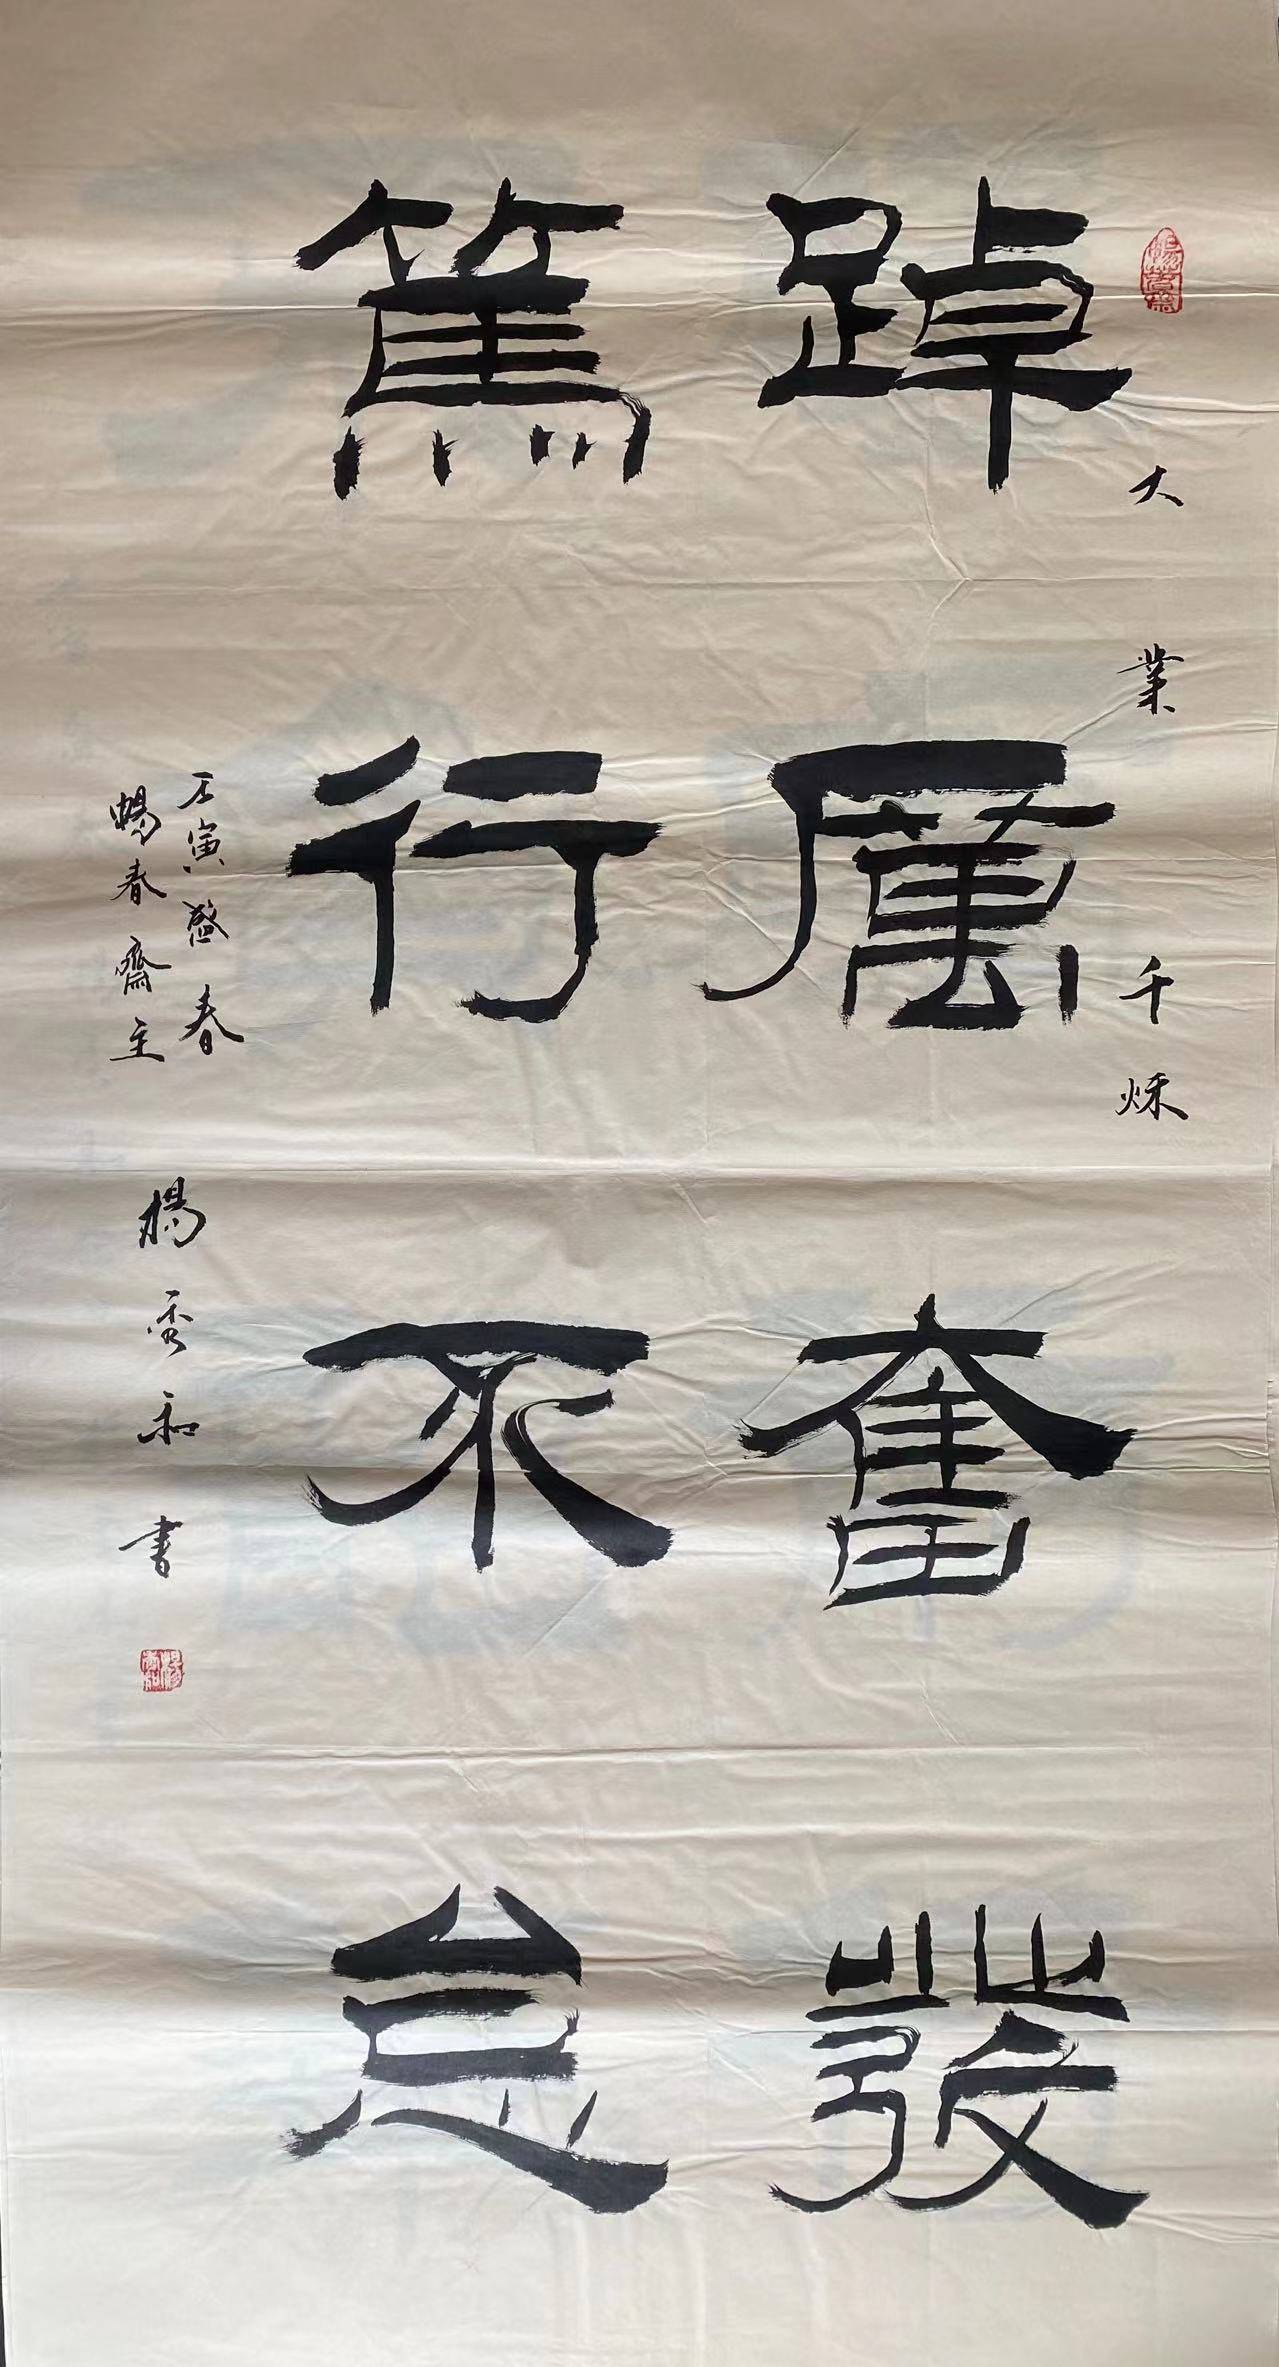 踔厲奮發
篤行不怠
大業千秌
壬寅盛春
暢春齋主
楊雲和書